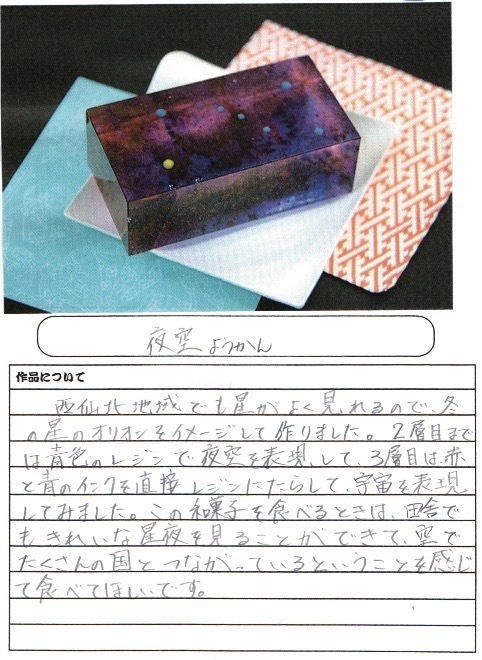 夜空ようかん
作品について
西仙北地域でも星がよく見れるので、冬
の星のオリオンをイメージして作りました。2層目まで
は青色のレジンで夜空を表現して、3層目は赤
と青のインクを直接レジンにたらして、宇宙を表現
してみました。この和菓子を食べるときは、田舎で
もきれいな星夜を見ることができて、空で
たくさんの国とつながっているということを感じ
て食べてほしいです。